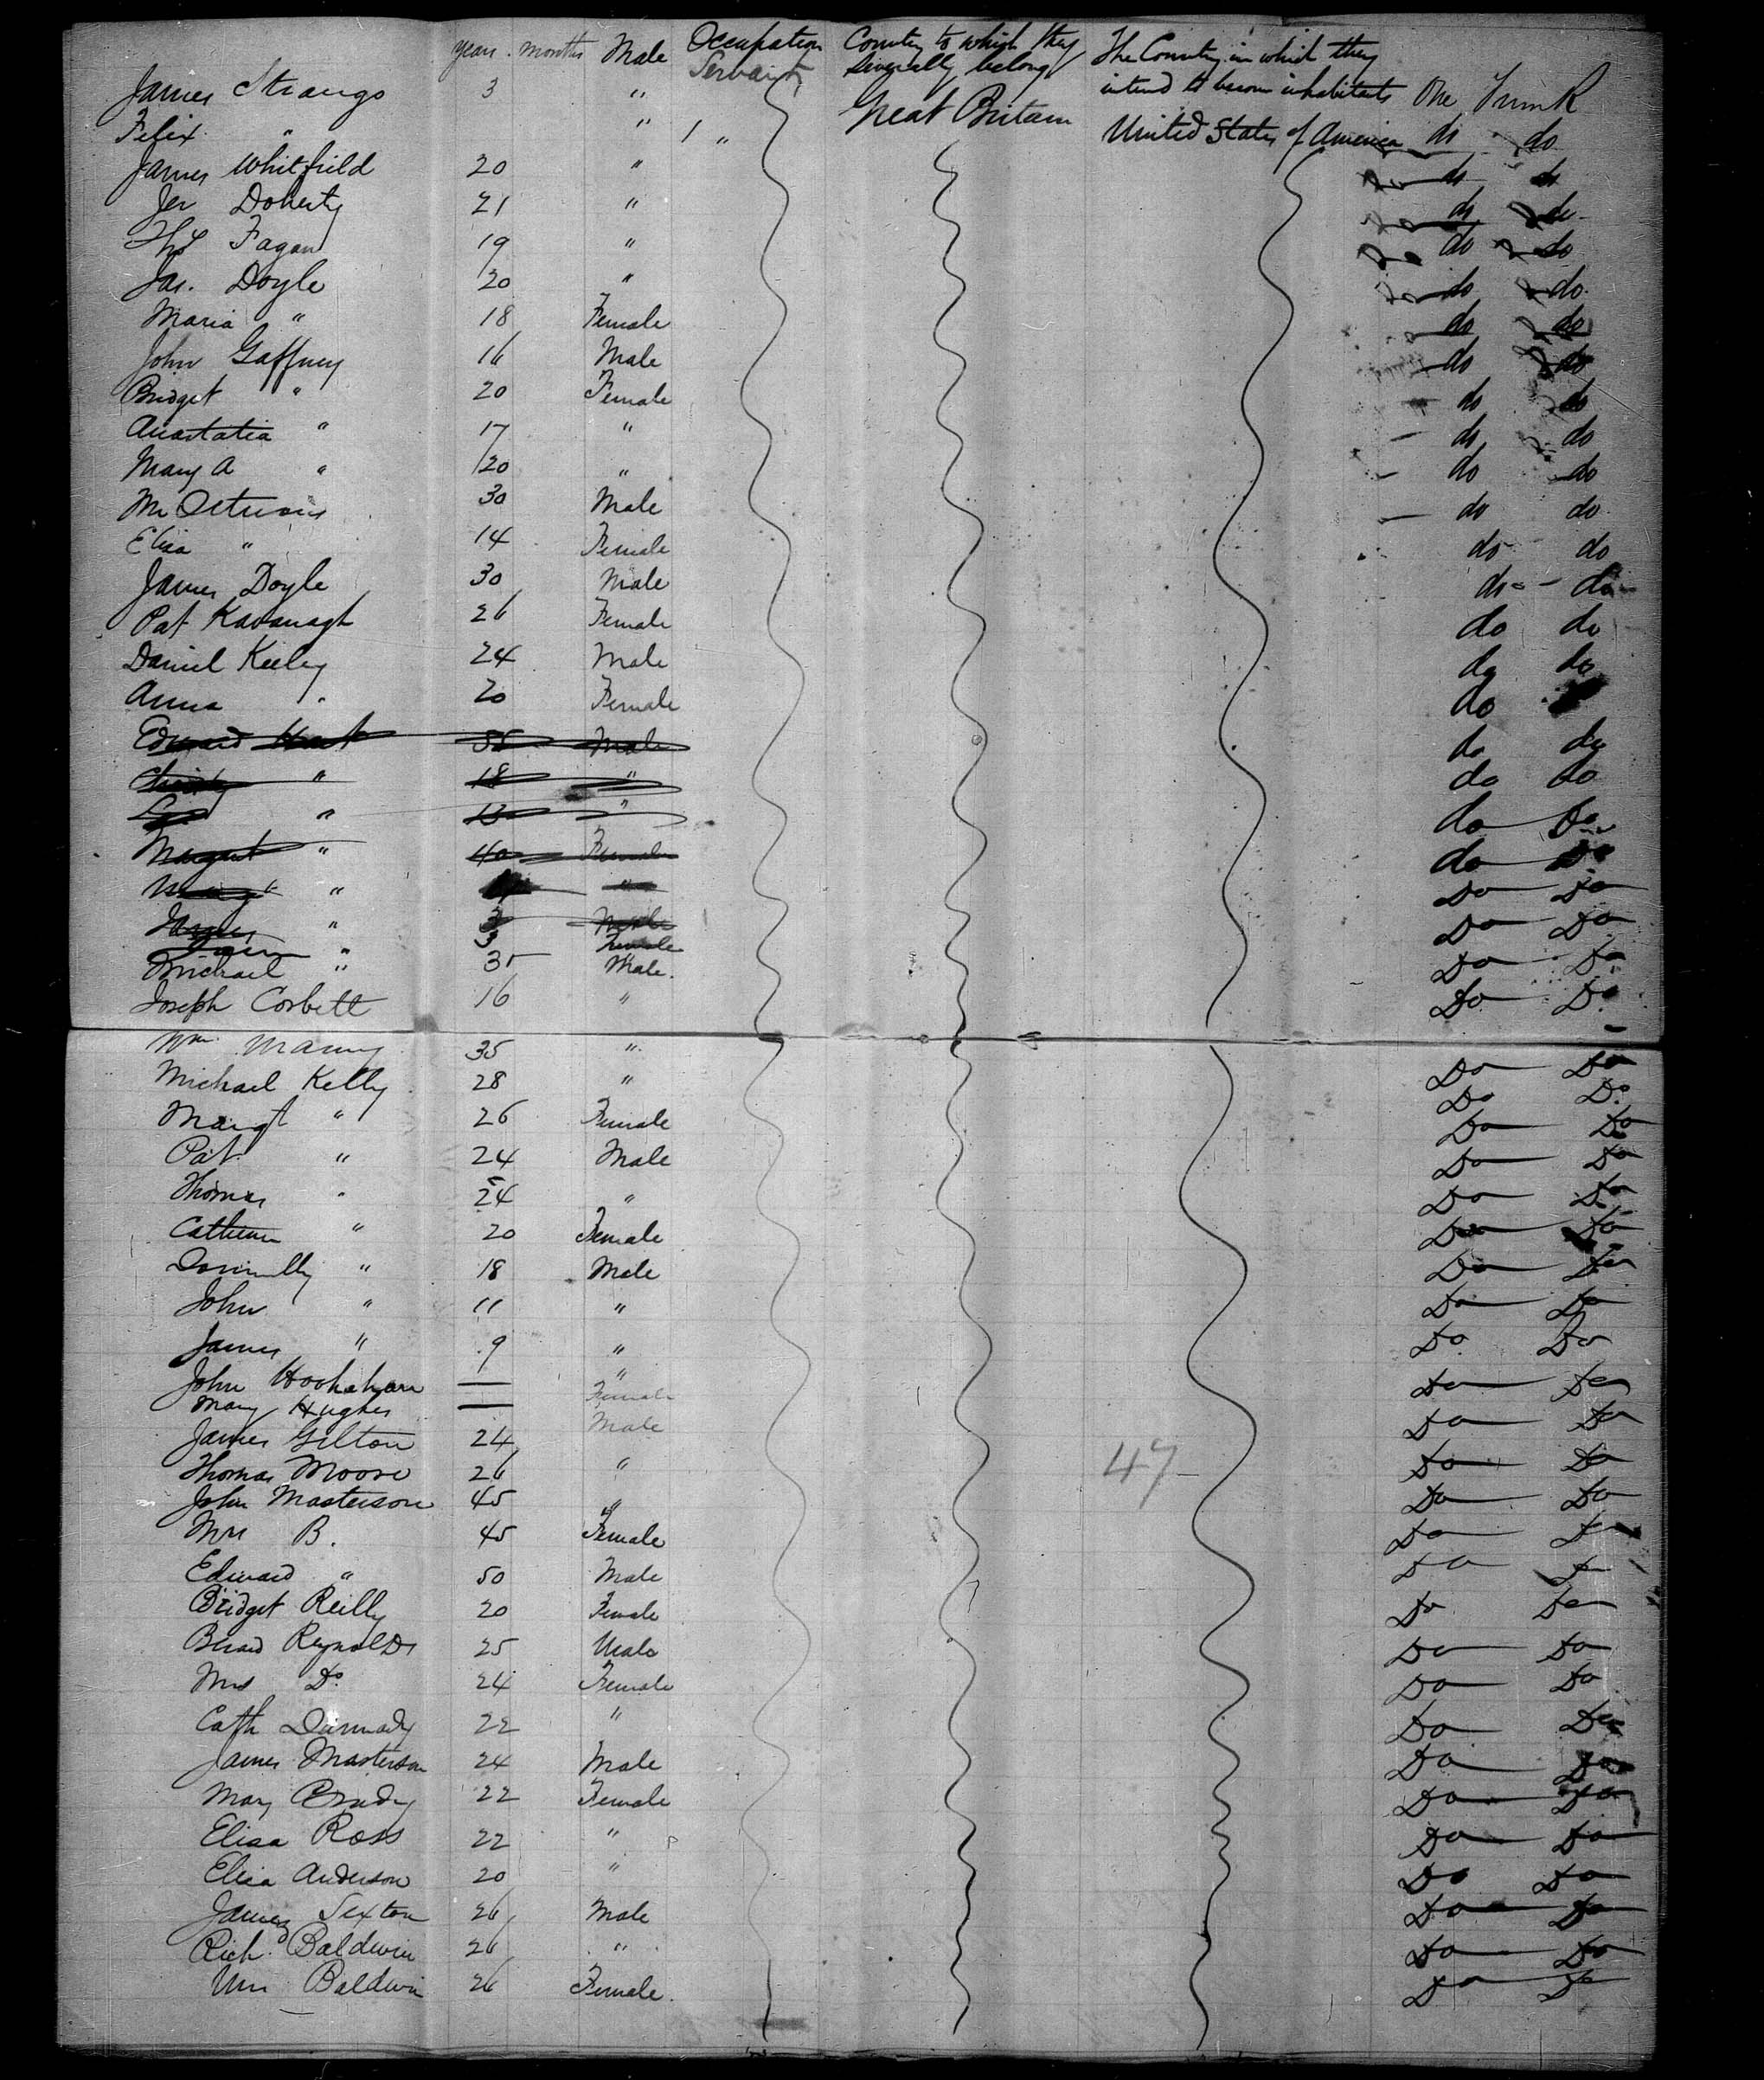 years. months Male Occupation Servants Country to which they severally belong The Country in which they intend to become inhabitants
James Strange 3 " Great Britain One Trunk
Felix " " 1 " United States of America do do
James Whitfield 20 " do do
Jer Doherty 21 " do do
Thos Fagan 19 " do do
Jas. Doyle 20 " do do
Maria " 18 Female do do
John Gaffney 16 Male do do
Bridget " 20 Female do do
Anastatia " 17 " do do
Mary A " 20 " do do
30 Male do do
Eliza " 14 Female do do
James Doyle 30 Male do do
Pat Kavanagh 26 Female do do
Daniel Keeley 24 Male do do
Anna " 20 Female do
Edward 55 Male do do
Christy " 18 " do do
" 13 " do Do
Margaret " 40 Female do Do
" " Do Do
James " 3 Male Do Do
" 3 Female
Michael " 35 Male. Do Do
Joseph Corbett 16 " Do Do
Wm. Manny 35 " Do Do
Michael Kelly 28 " Do Do
Margt " 26 Female Do Do
Pat " 24 Male Do Do
Thomas " 24 " Do Do
Catherine " 20 Female Do Do
Donnelly " 18 Male Do Do
John " 11 " Do Do
James " 9 " Do Do
John — " Do Do
Mary Hughes — Female Do Do
James Gilton 24 Male Do Do
Thomas Moore 26 " 47 Do Do
John Masterson 45 " Do Do
Mrs B. 45 Female Do Do
Edward " 50 Male Do Do
Bridget Reilly 20 Female Do Do
Bernard Reynolds 25 Male Do Do
Mrs Do 24 Female Do Do
Cath 22 " Do Do
James Masterson 24 Male Do Do
Mary Brady 22 Female Do Do
Eliza Ross 22 " Do Do
Eliza Anderson 20 " Do Do
James Sexton 26 Male Do Do
Richd Baldwin 26 " Do Do
Mrs Baldwin 26 Female. Do Do